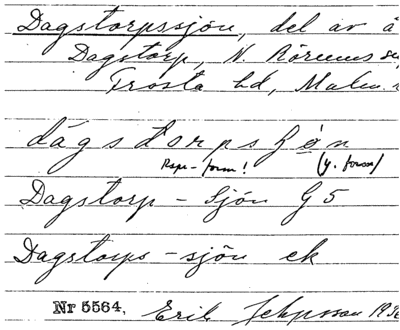 Dagstorpssjön, del av å
Dagstorp, N. Rörums sn,
Frosta hd, Malm.
dágstorpsʃøn
Rspr-form! (y. form)
Dagstorp - Sjön G5
Dagstorps - sjön ek
Nr 5564, Erik Jeppsson 193